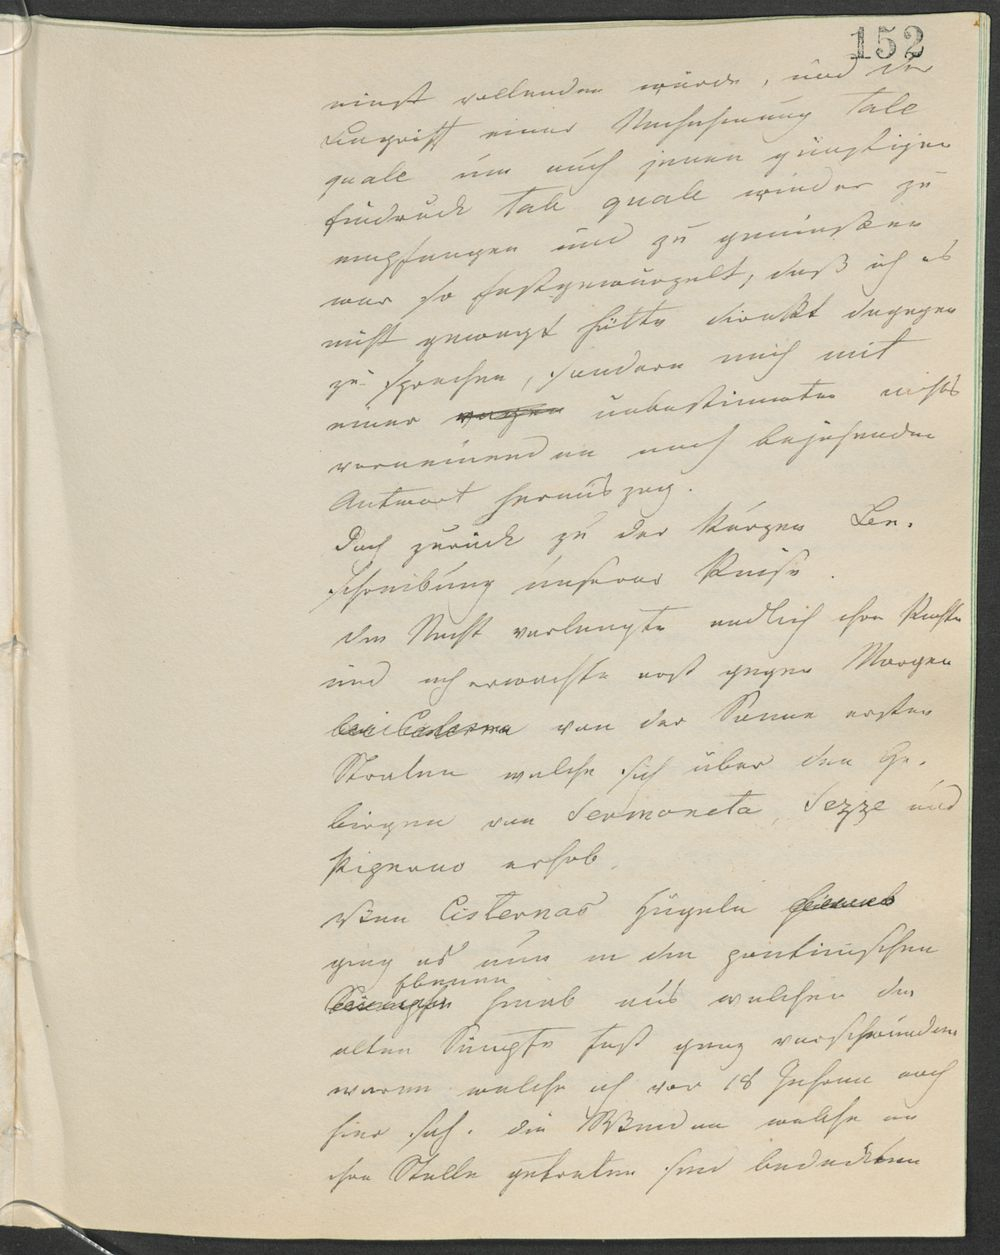 152
einst vollenden würde, und der
Begriff einer Nachahmung tale
quale um auch jenen günstigen
Eindruck tale quale wieder zu
empfangen und zu genießen
war so festgewurzelt, daß ich es
nicht gewagt hätte direkt dagegen
zu sprechen, sondern mich mit
einer vagen unbestimmten nichts
verneinenden noch bejahenden
Antwort herauszog.
Doch zurück zu der kurzen Be-
schreibung unserer Reise.
Die Nacht verlangte endlich ihre Rechte
und ich erwachte erst gegen Morgen
bei Cisterna von der Sonne ersten
Stralen welche sich über den Ge-
birgen von Sermoneta, Sezze und
Piperno erhob.
Von Cisternas Hügeln hinab
ging es nun in die pontinischen
Ebenen
Sümpfe hinab aus welchen die
alten Sümpfe fast ganz verschwunden
waren welche ich vor 18 Jahren noch
hier sah. Die Weiden welche an
ihre Stelle getreten sind bedeckten